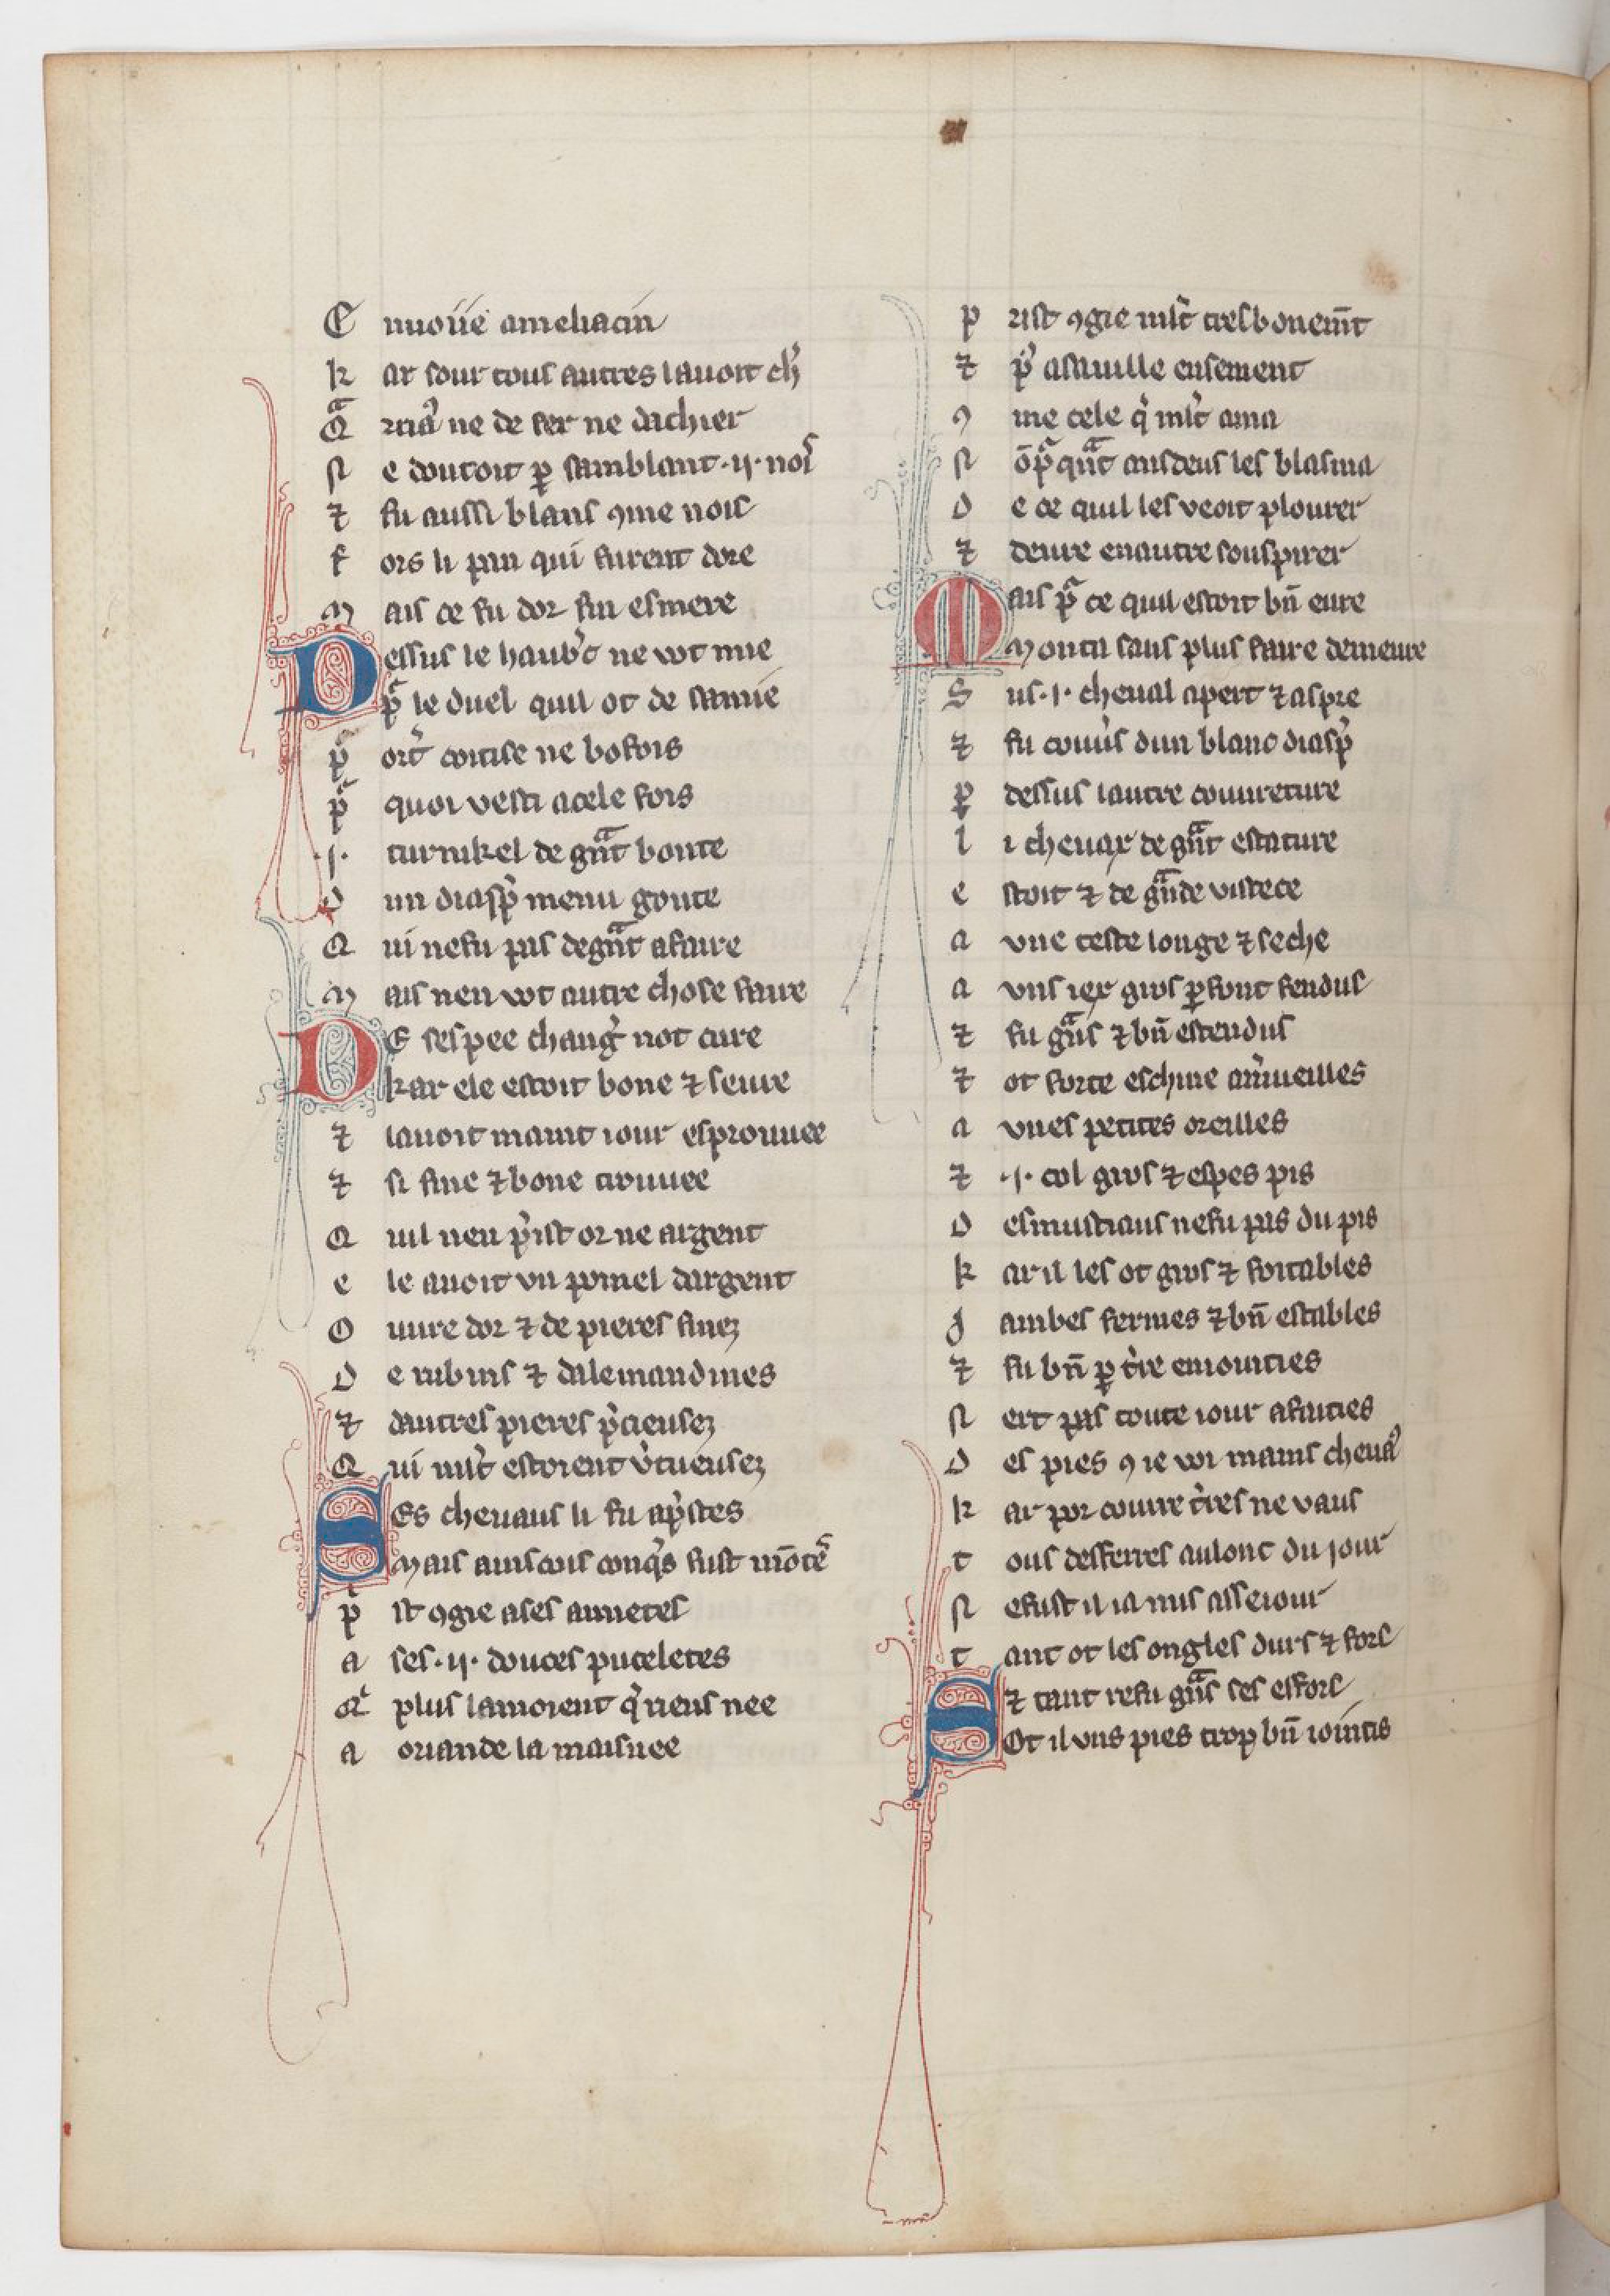 E nuoiie ameliacin
k ar sour tous autres lauoit ch'
Qª rriaˀ ne de fer ne dachier
N e doutoit ꝑ samblant .ij. nois
⁊ fu aussi blans ꝯme nois
f ors li pan qui furent dore
M ais ce fu dor fin esmere
Dessus le haub't ne vot mie
pᷓ le duel quil ot de samie
p ort' cointise ne bofois
pᷓ quoi vesti a cele fois
.j. turnikel de gᷓnt bonte
D un diasp' menu goute
Q ui ne fu pas de gᷓnt afaire
M ais nen vot autre chose faire
DE sespee chang' not cure
kar ele estoit bone ⁊ seure
⁊ lauoit maint iour esprouuee
⁊ si fine ⁊ bone trouuee
Q uil nen p'ist or ne argent
e le auoit vn pomel dargent
O uure dor ⁊ de pieres finez
D e rubins ⁊ dalemandines
⁊ dautres pieres p'cieusez
Q ui mlt' estoient v'tueusez
Ses cheuaus li fu ap'stes
Mais ains cous conq's fust mōtes
p ist ꝯgie a ses amietes
a ses .ij. douces puceletes
Q plus lamoient q' riens nee
a oriande la maisnee
p rist ꝯgie mlt' tres bonem̄t
⁊ p' a famille ensement
ꝯ me cele q' mlt' ama
N ō pᷓquᷓnt ansdeus les blasma
D e ce quil les veoit plourer
⁊ deure en autre souspirer
Mais pᷓ ce quil estoit bn̄ eure
Monta sans plus faire demeure
S us .j. cheual apert ⁊ aspre
⁊ fu couu's dun blanc diasp'
ꝑ dessus lautre couureture
l i cheuax de gᷓnt estature
e stoit ⁊ de gᷓnde vistece
a vne teste longe ⁊ seche
a vns iex gros ꝑfont fendus
⁊ fu gᷓns ⁊ bn̄ estendus
⁊ ot forte eschine a m'ueilles
a vnes petites oreilles
⁊ .j. col gros ⁊ espes pis
D esmustiaus ne fu pas du pis
k ar il les ot gros ⁊ fortables
J ambes fermes ⁊ bn̄ estables
⁊ fu bn̄ ꝑ t're enointies
N ert pas toute iour afaities
D es pies ꝯ ie voi mains cheuaˀ
k ar por courre t'res ne vaus
t ous desferres aulonc du jour
N e fust il ia mis asseiour
t ant ot les ongles durs ⁊ fors
⁊ tant refu gᷓns ses esfors
SOt il vns pies trop bn̄ iointis